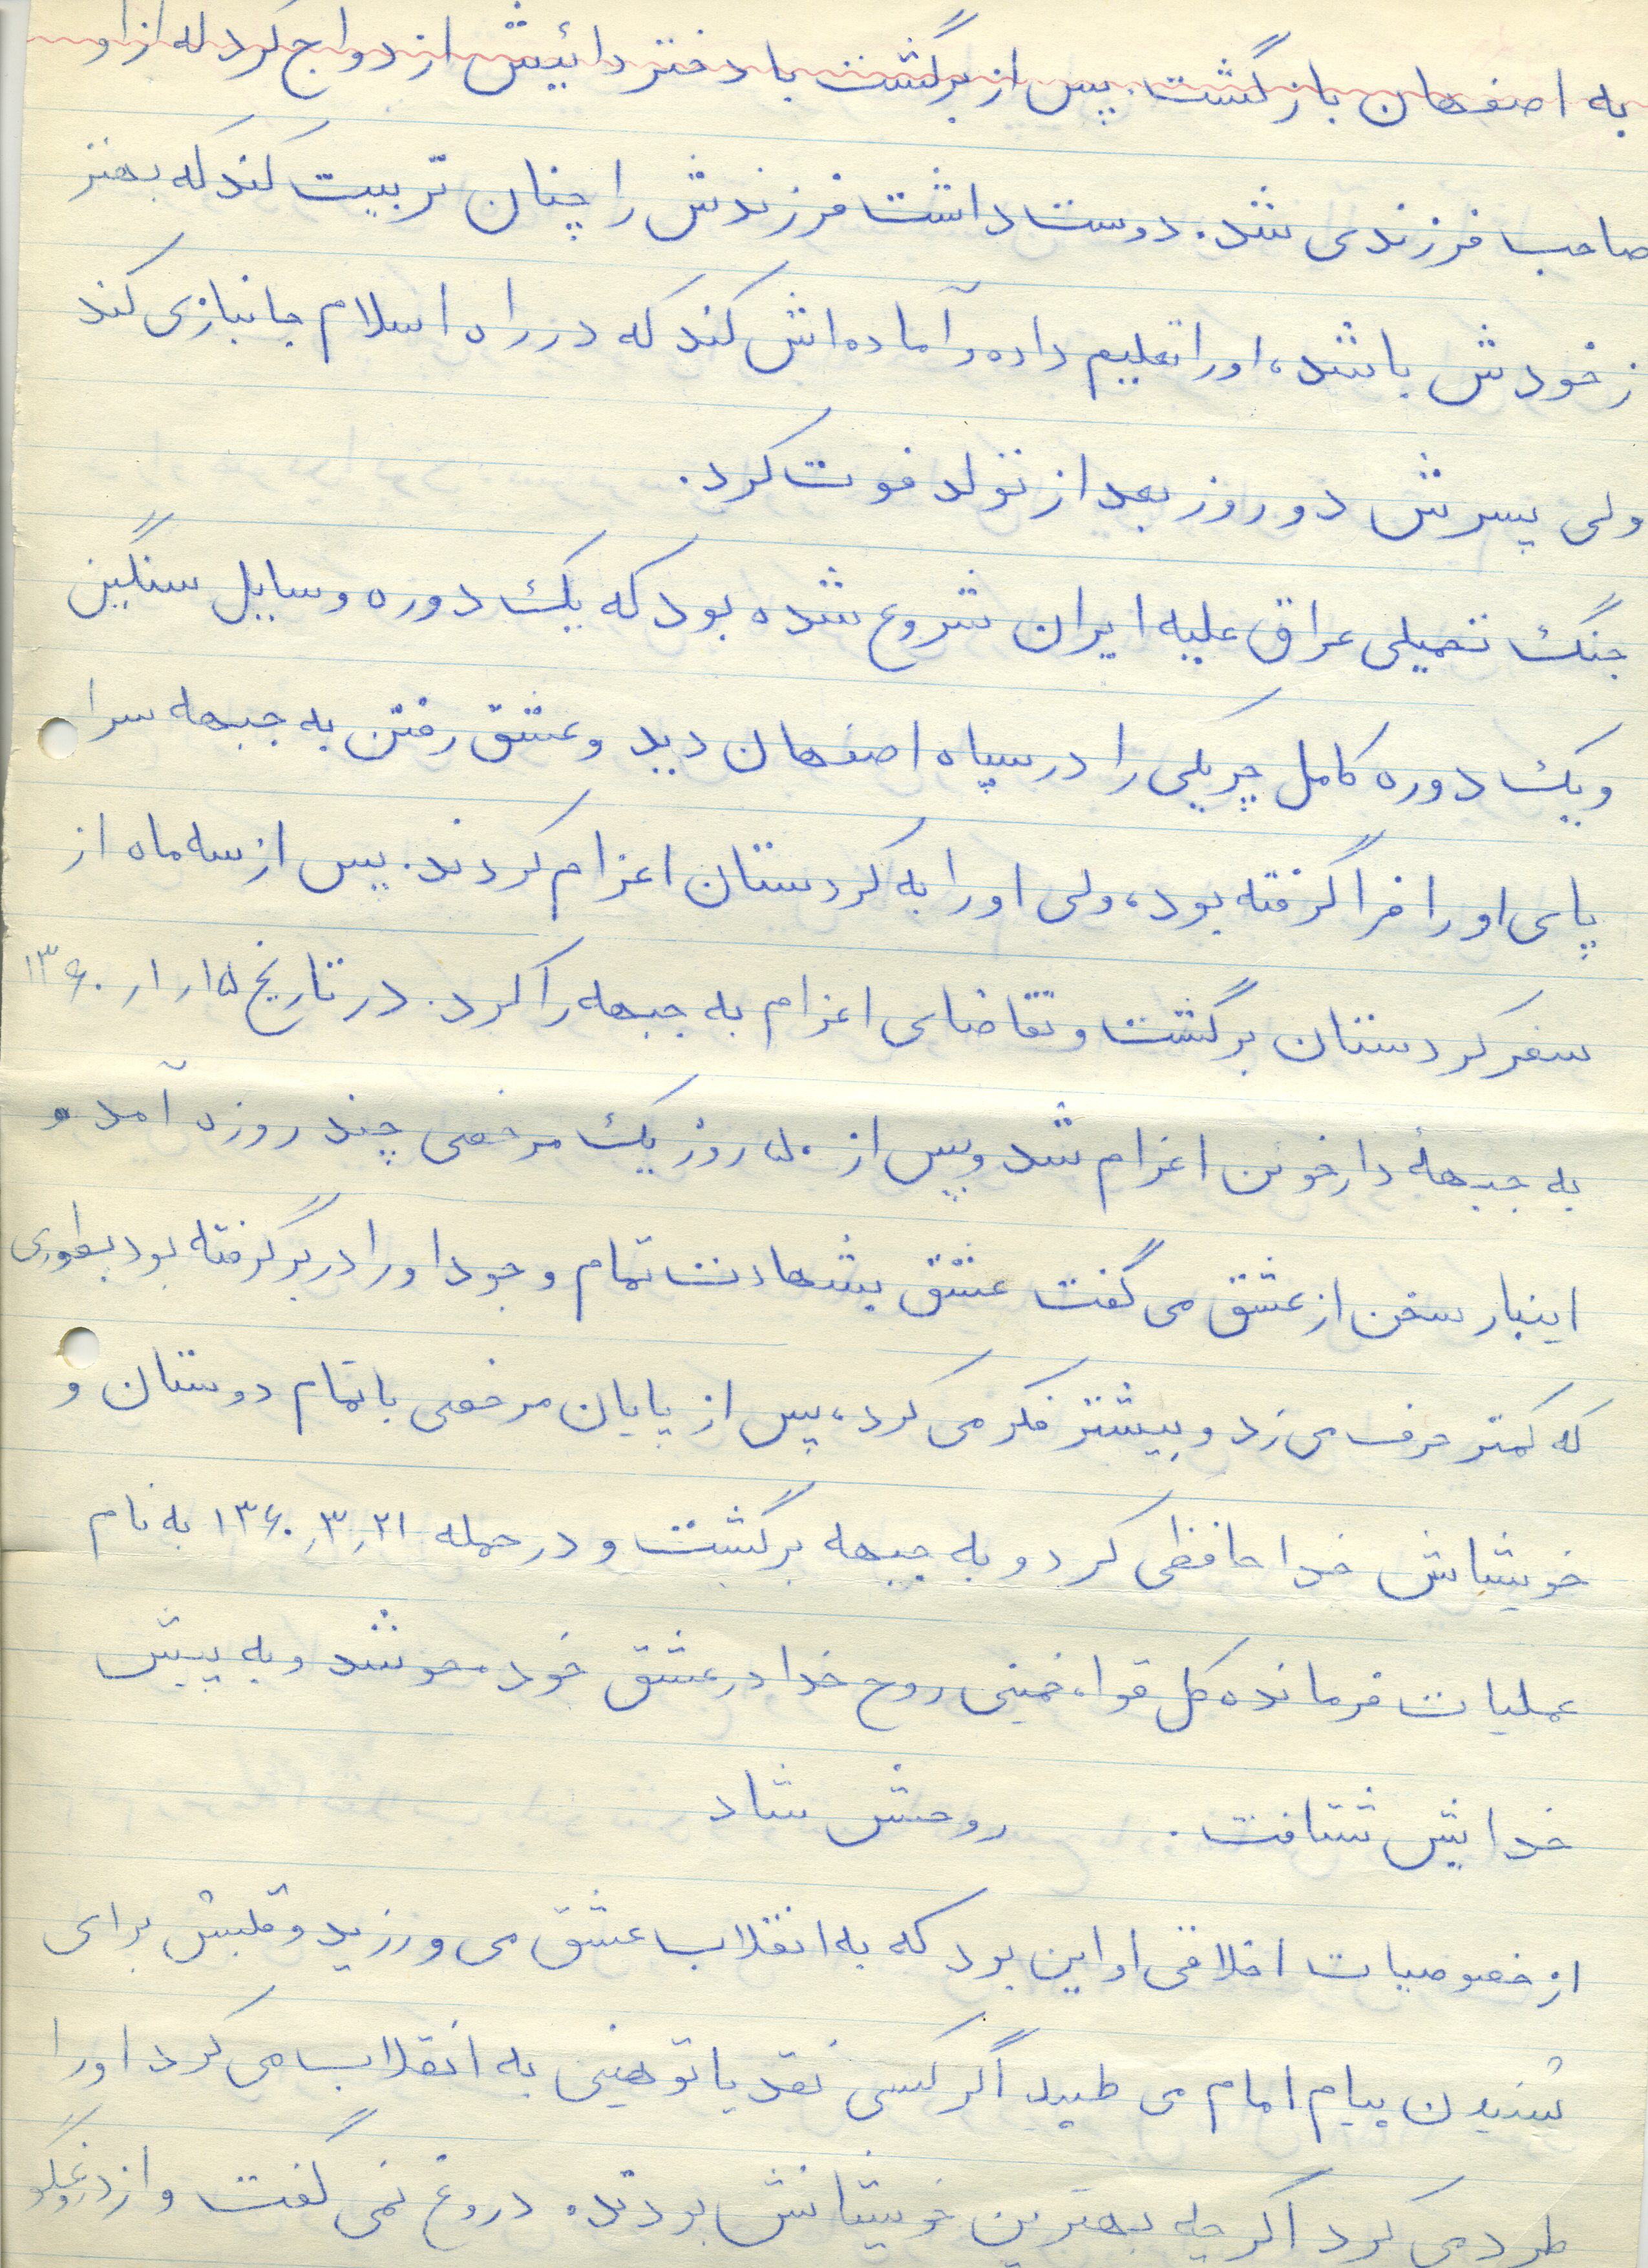 به اصفهان بازگشت. پس از برگشت با دختر دائیش ازدواج کرد که از او
صاحب فرزندی شد. دوست داشت فرزندش را چنان تربیت کند که بهتر
ز خودش باشد، او را تعلیم داده و آماده‌اش کند که در راه اسلام جانبازی کند
ولی پسرش دو روز بعد از تولد فوت کرد.
جنگ تحمیلی عراق علیه ایران شروع شده بود که یک دوره وسایل سنگین
و یک دوره کامل چریکی را در سپاه اصفهان دید و عشق رفتن به جبهه سرا
پای او را فرا گرفته بود، ولی او را به کردستان اعزام کردند. پس از سه ماه از
سفر کردستان برگشت و تقاضای اعزام به جبهه را کرد. در تاریخ ۱۵ر۱ر۱۳۶۰
به جبههٔ دارخوین اعزام شد و پس از ۵۰ روز یک مرخصی چند روزه آمد و
اینبار سخن از عشق می گفت عشق بشهادت تمام وجود او را در بر گرفته بود بطوری
که کمتر حرف می زد و بیشتر فکر می کرد، پس از پایان مرخصی با تمام دوستان و
خویشاش خداحافظی کرد و به جبهه برگشت و در حمله ۲۱ر۳ر۱۳۶۰ به نام
عملیات فرمانده کل قوا، خمینی روح خدا در عشق خود محو شد و به پیش
خدایش شتافت. روحش شاد
از خصوصیات اخلاقی او این بود که به انقلاب عشق می ورزید و قلبش برای
شنیدن پیام امام می طپید اگر کسی نقد یا توهینی به انقلاب می کرد او را
طرد می کرد اگر چه بهترین خویشانش بودند. دروغ نمی گفت و از دروغگو